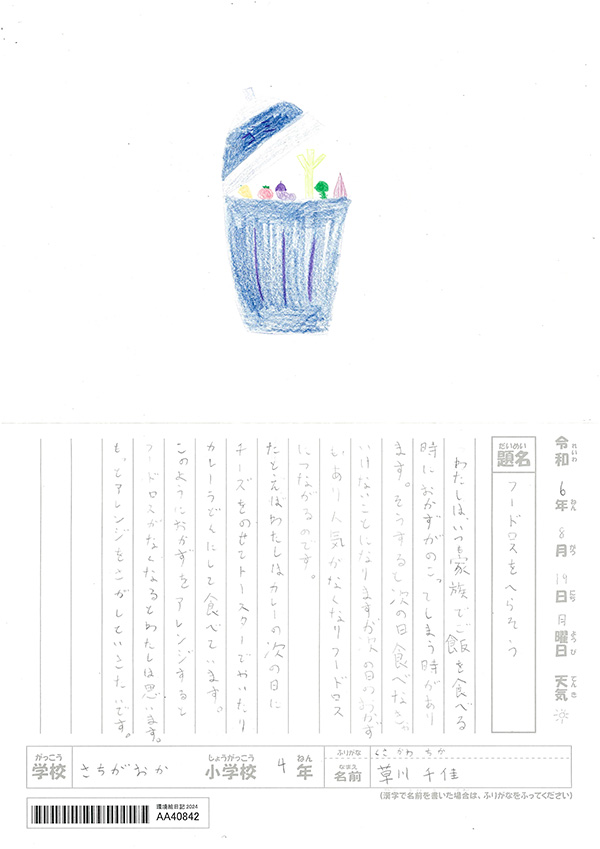 令和 6年 8月 19日 月曜日 天気
れいわ ねん がつ にち ようび てんき
だいめい
題名 フードロスをへらそう
わたしは、いつも家族でご飯を食べる
時におかずがのこってしまう時があり
ます。そうすると次の日食べなきゃ
いけないことになりますが次の日のおかず
もあり人気がなくなりフードロス
につながるのです。
たとえばわたしはカレーの次の日に
チーズをのせてトースターでやいたり
カレーうどんにして食べています。
このようにおかずをアレンジすると
フードロスがなくなるとわたしは思います。
もっとアレンジをさがしていきたいです。
がっこう しょうがっこう ねん
学校 さちがおか 小学校 4年
ふりがな くさかわ ちか
なまえ
名前 草川 千佳
(漢字で名前を書いた場合は、ふりがなをふってください)
環境絵日記2024
AA40842